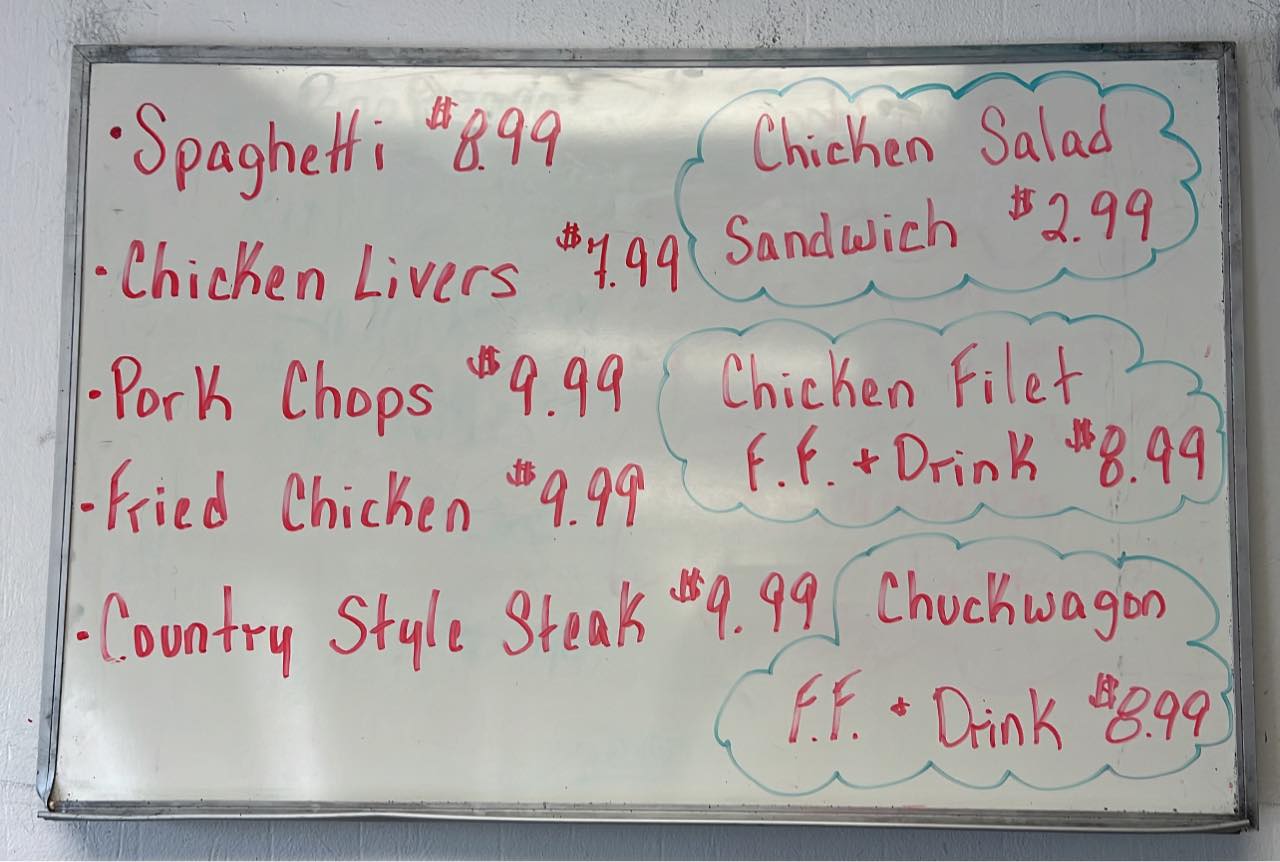 • Spaghetti $8.99
• Chicken Livers $7.99
• Pork Chops $9.99
• Fried Chicken $9.99
• Country Style Steak $9.99
Chicken Salad
Sandwich $2.99
Chicken Filet
F.F. + Drink $8.99
Chuckwagon
F.F. + Drink $8.99